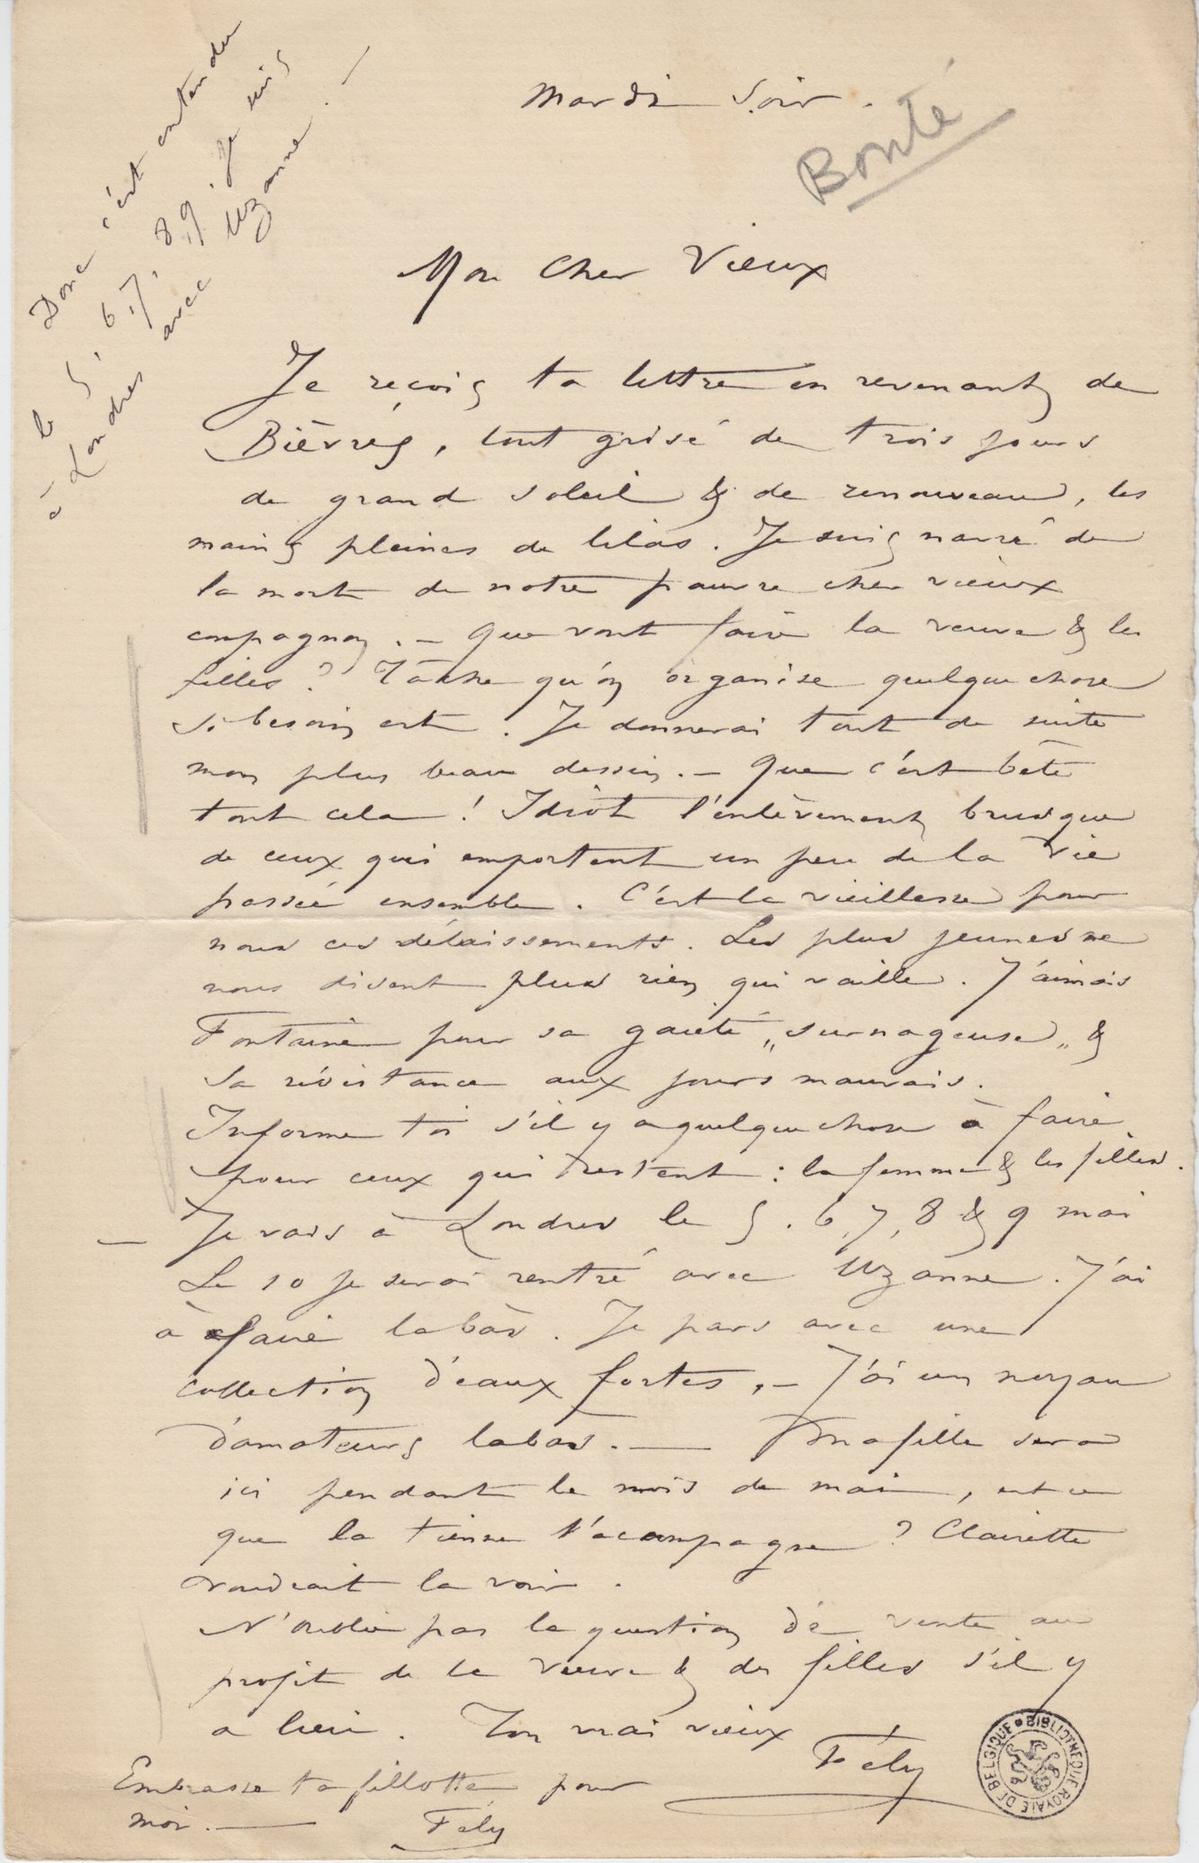 Mardi Soir.
Bonté
Donc c'est entendu
le 5, 6, 7, 8, 9. Je suis
à Londres avec Uzanne. —
Mon Cher Vieux
Je reçois ta lettre en revenant de
Bièvres, tout grisé de trois jours
de grand soleil & de renouveau, les
mains pleines de lilas. Je suis navré de
la mort de notre pauvre cher vieux
compagnon. — Que vont faire la veuve & les
filles? Tâche qu'on organise quelque chose
si besoin est. Je donnerai tout de suite
mon plus beau dessin. — Que c'est bête
tout cela! Idiot l'enlèvement brusque
de ceux qui emportent un peu de la vie
passée ensemble. C'est la vieillesse pour
nous ces délaissements. Les plus jeunes ne
nous disent plus rien qui vaille. J'aimais
Fontaine pour sa gaieté „surnageuse„ &
sa résistance aux jours mauvais.
Informe toi s'il y a quelque chose à faire
pour ceux qui restent: la femme & les filles.
— Je vais à Londres le 5. 6, 7, 8 & 9 mai
Le 10 je serai rentré avec Uzanne. J'ai
à faire labàs. Je pars avec une
collection d'eaux fortes, — J'ai un noyau
d'amateurs labas. — Ma fille sera
ici pendant le mois de mai, est ce
que la tienne t'acompagne? Clairette
voudrait la voir.
N'oublie pas la question de vente au
profit de la veuve & des filles s'il y
a lieu. Ton vrai vieux
Fély
Embrasse ta fillotte pour
moi. — Fély
BIBLIOTHEQUE ROYALE DE BELGIQUE